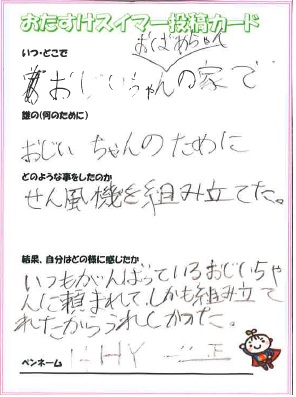 おたすけスイマー投稿カード
いつ・どこで
おばあちゃん
おじいちゃんの家で
誰の(何のために)
おじいちゃんのために
どのような事をしたのか
せん風機を組み立てた。
結果、自分はどの様に感じたか
いつもがんばっているおじいちゃ
んに頼まれて、しかも組み立て
れたからうれしかった。
ペンネーム HY